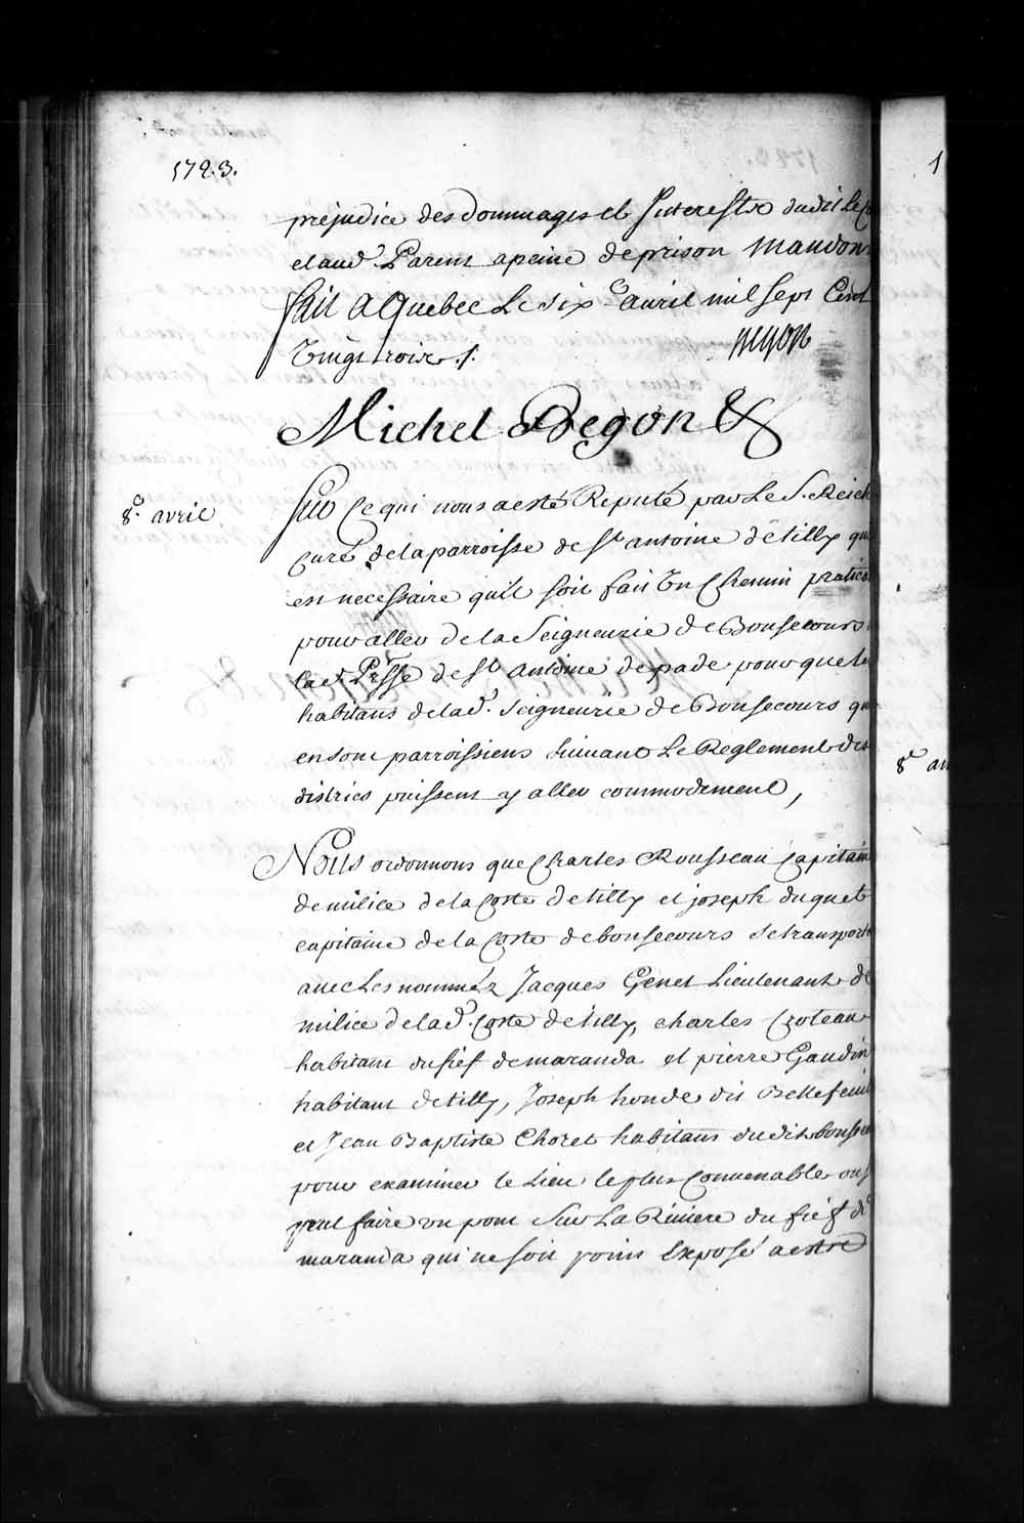 1723.
prejudice des dommages et Interests dudit
et aud. Parent a peine de prison Mandons
fait a Quebec Le six.e auril mil sept Cent
Vingt trois ./.
Begon
Michel Begon &
8.e avril
Sur Ce qui nous a esté Reputé par Le S.
Curé de la parroisse de S.t antoine de tilly
est necessaire qu'il soit fait Un Chemin
pour aller de la Seigneurie de Bonsecours
lad. P.sse de S.t Antoine depade pour que
habitans de lad. Seigneurie de Bonsecours
en sont parroissiens suiuant Le Reglement des
districs puissent y aller commodement,
Nous ordonnons que Charles Rousseau Capitaine
de milice de la Coste de tilly et joseph duquet
capitaine de la Coste de bonsecours se transport
auec Les nommez Jacques Genest Lieutenant de
milice de lad. Coste de tilly, charles Croteau
habitant du fief de maranda et pierre Gaudin
habitant de tilly, Joseph houde dit Bellefeuil
et Jean Baptiste Choret habitans dudit
pour examiner le Lieu le plus Conuenable ou
peut faire un pont Sur La Riuiere du fief de
maranda qui ne soit point Exposé a estre
1
8.e